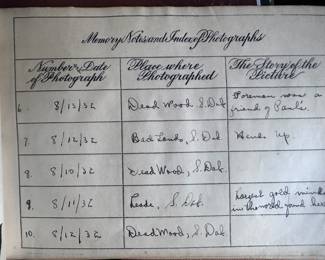 Memory Notes and Index of Photographs
Number & Date
of Photograph
Place where
Photographed
The Story of the
Picture
6. 8/13/32 Dead Wood, S. Dak. Foreman was a
friend of Paul's.
7. 8/12/32 Bad Lands, S. Dak Hands Up.
8. 8/10/32 Dead Wood, S. Dak.
9. 8/11/32 Leade, S. Dak. Largest gold mine
in the world
10. 8/12/32 Dead Wood, S. Dak